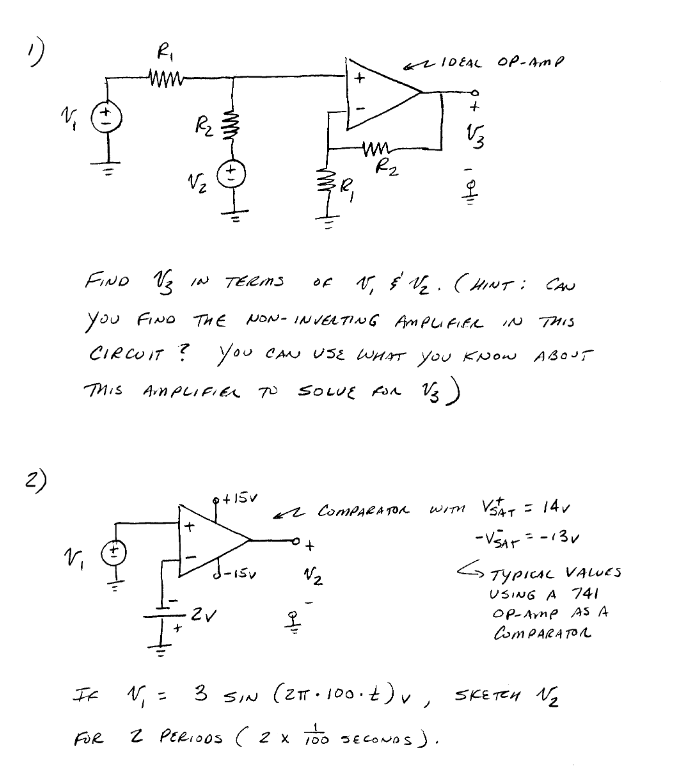 1)
R₁
IDEAL OP-AMP
+
+
V₁
+
−
R₂
−
V₃
R₂
V₂
+
−
R₁
−
FIND V₃ IN TERMS OF V₁ & V₂. (HINT: CAN
YOU FIND THE NON-INVERTING AMPLIFIER IN THIS
CIRCUIT? YOU CAN USE WHAT YOU KNOW ABOUT
THIS AMPLIFIER TO SOLVE FOR V₃)
2)
+15V
COMPARATOR WITH V⁺SAT = 14V
+
-V⁻SAT = -13V
V₁
+
−
−
+
-15V
V₂
TYPICAL VALUES
USING A 741
OP-AMP AS A
COMPARATOR
−
2V
+
−
IF V₁ = 3 SIN (2π·100·t) V, SKETCH V₂
FOR 2 PERIODS (2 x 1/100 SECONDS).